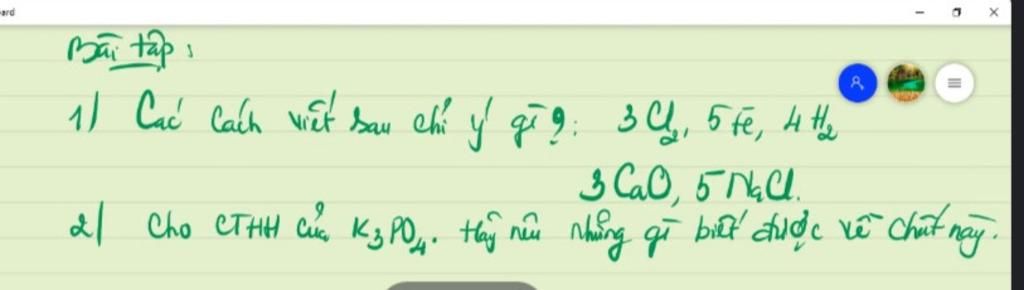 ard
Bài tập:
1) Các cách viết sau chỉ ý gì?: 3Cl₂, 5Fe, 4H₂
3CaO, 5NaCl.
2) Cho CTHH của K₃PO₄. Hãy nêu những gì biết được về chất này.